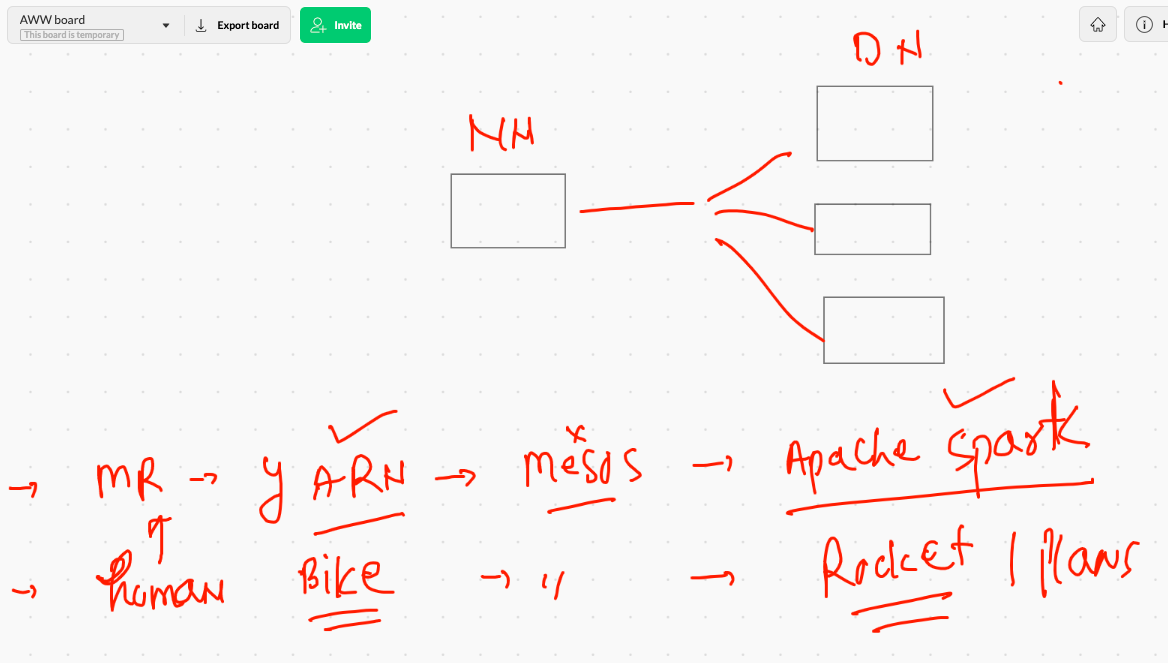 AWW board
This board is temporary
Export board
Invite
H
DN
NN
→ MR → YARN → Mesos → Apache Spark
→ human Bike → " → Rocket |